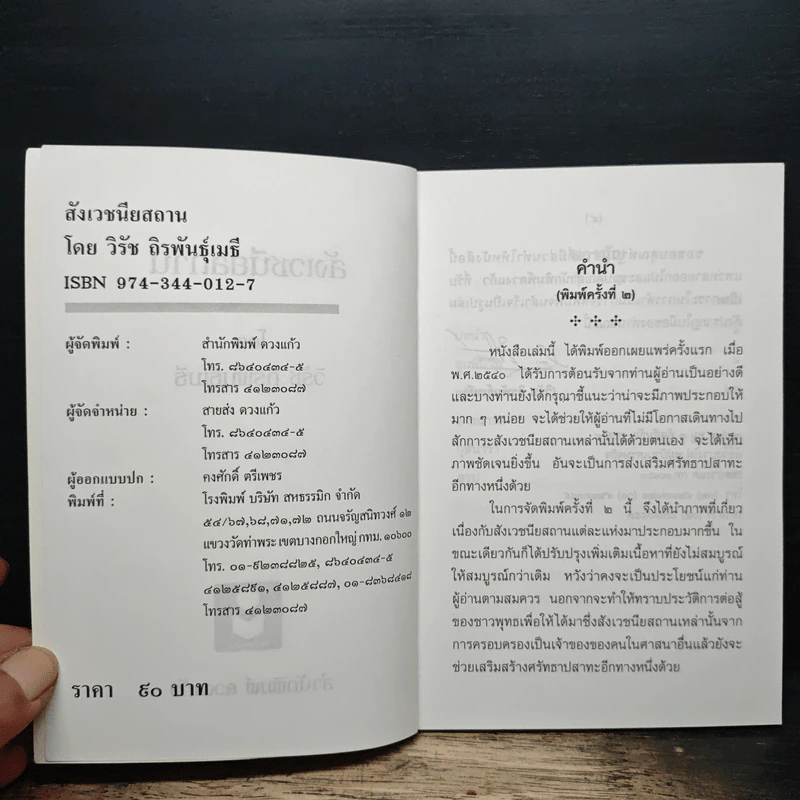 สังเวชนียสถาน
โดย วิรัช ถิรพันธุ์เมธี
ISBN 974-344-012-7
ผู้จัดพิมพ์ : สำนักพิมพ์ ดวงแก้ว
โทร. ๘๖๔๐๔๓๔-๕
โทรสาร ๔๑๒๓๐๘๗
ผู้จัดจำหน่าย : สายส่ง ดวงแก้ว
โทร. ๘๖๔๐๔๓๔-๕
โทรสาร ๔๑๒๓๐๘๗
ผู้ออกแบบปก : คงศักดิ์ ตรีเพชร
พิมพ์ที่ : โรงพิมพ์ บริษัท สหธรรมิก จำกัด
๕๔/๖๗,๖๘,๗๑,๗๒ ถนนจรัญสนิทวงศ์ ๑๒
แขวงวัดท่าพระ เขตบางกอกใหญ่ กทม. ๑๐๖๐๐
โทร. ๐๑-๙๒๓๘๘๒๕, ๘๖๔๐๔๓๔-๕
๔๑๒๕๘๙๑, ๔๑๒๕๘๘๗, ๐๑-๘๓๖๘๔๑๘
โทรสาร ๔๑๒๓๐๘๗
ราคา ๙๐ บาท
คำนำ
(พิมพ์ครั้งที่ ๒)
หนังสือเล่มนี้ ได้พิมพ์ออกเผยแพร่ครั้งแรก เมื่อ
พ.ศ.๒๕๔๐ ได้รับการต้อนรับจากท่านผู้อ่านเป็นอย่างดี
และบางท่านยังได้กรุณาชี้แนะว่าน่าจะมีภาพประกอบให้
มาก ๆ หน่อย จะได้ช่วยให้ผู้อ่านที่ไม่มีโอกาสเดินทางไป
สักการะสังเวชนียสถานเหล่านั้นได้ด้วยตนเอง จะได้เห็น
ภาพชัดเจนยิ่งขึ้น อันจะเป็นการส่งเสริมศรัทธาปสาทะ
อีกทางหนึ่งด้วย
ในการจัดพิมพ์ครั้งที่ ๒ นี้ จึงได้นำภาพที่เกี่ยว
เนื่องกับสังเวชนียสถานแต่ละแห่งมาประกอบมากขึ้น ใน
ขณะเดียวกันก็ได้ปรับปรุงเพิ่มเติมเนื้อหาที่ยังไม่สมบูรณ์
ให้สมบูรณ์กว่าเดิม หวังว่าคงจะเป็นประโยชน์แก่ท่าน
ผู้อ่านตามสมควร นอกจากจะทำให้ทราบประวัติการต่อสู้
ของชาวพุทธเพื่อให้ได้มาซึ่งสังเวชนียสถานเหล่านั้นจาก
การครอบครองเป็นเจ้าของของคนในศาสนาอื่นแล้วยังจะ
ช่วยเสริมสร้างศรัทธาปสาทะอีกทางหนึ่งด้วย